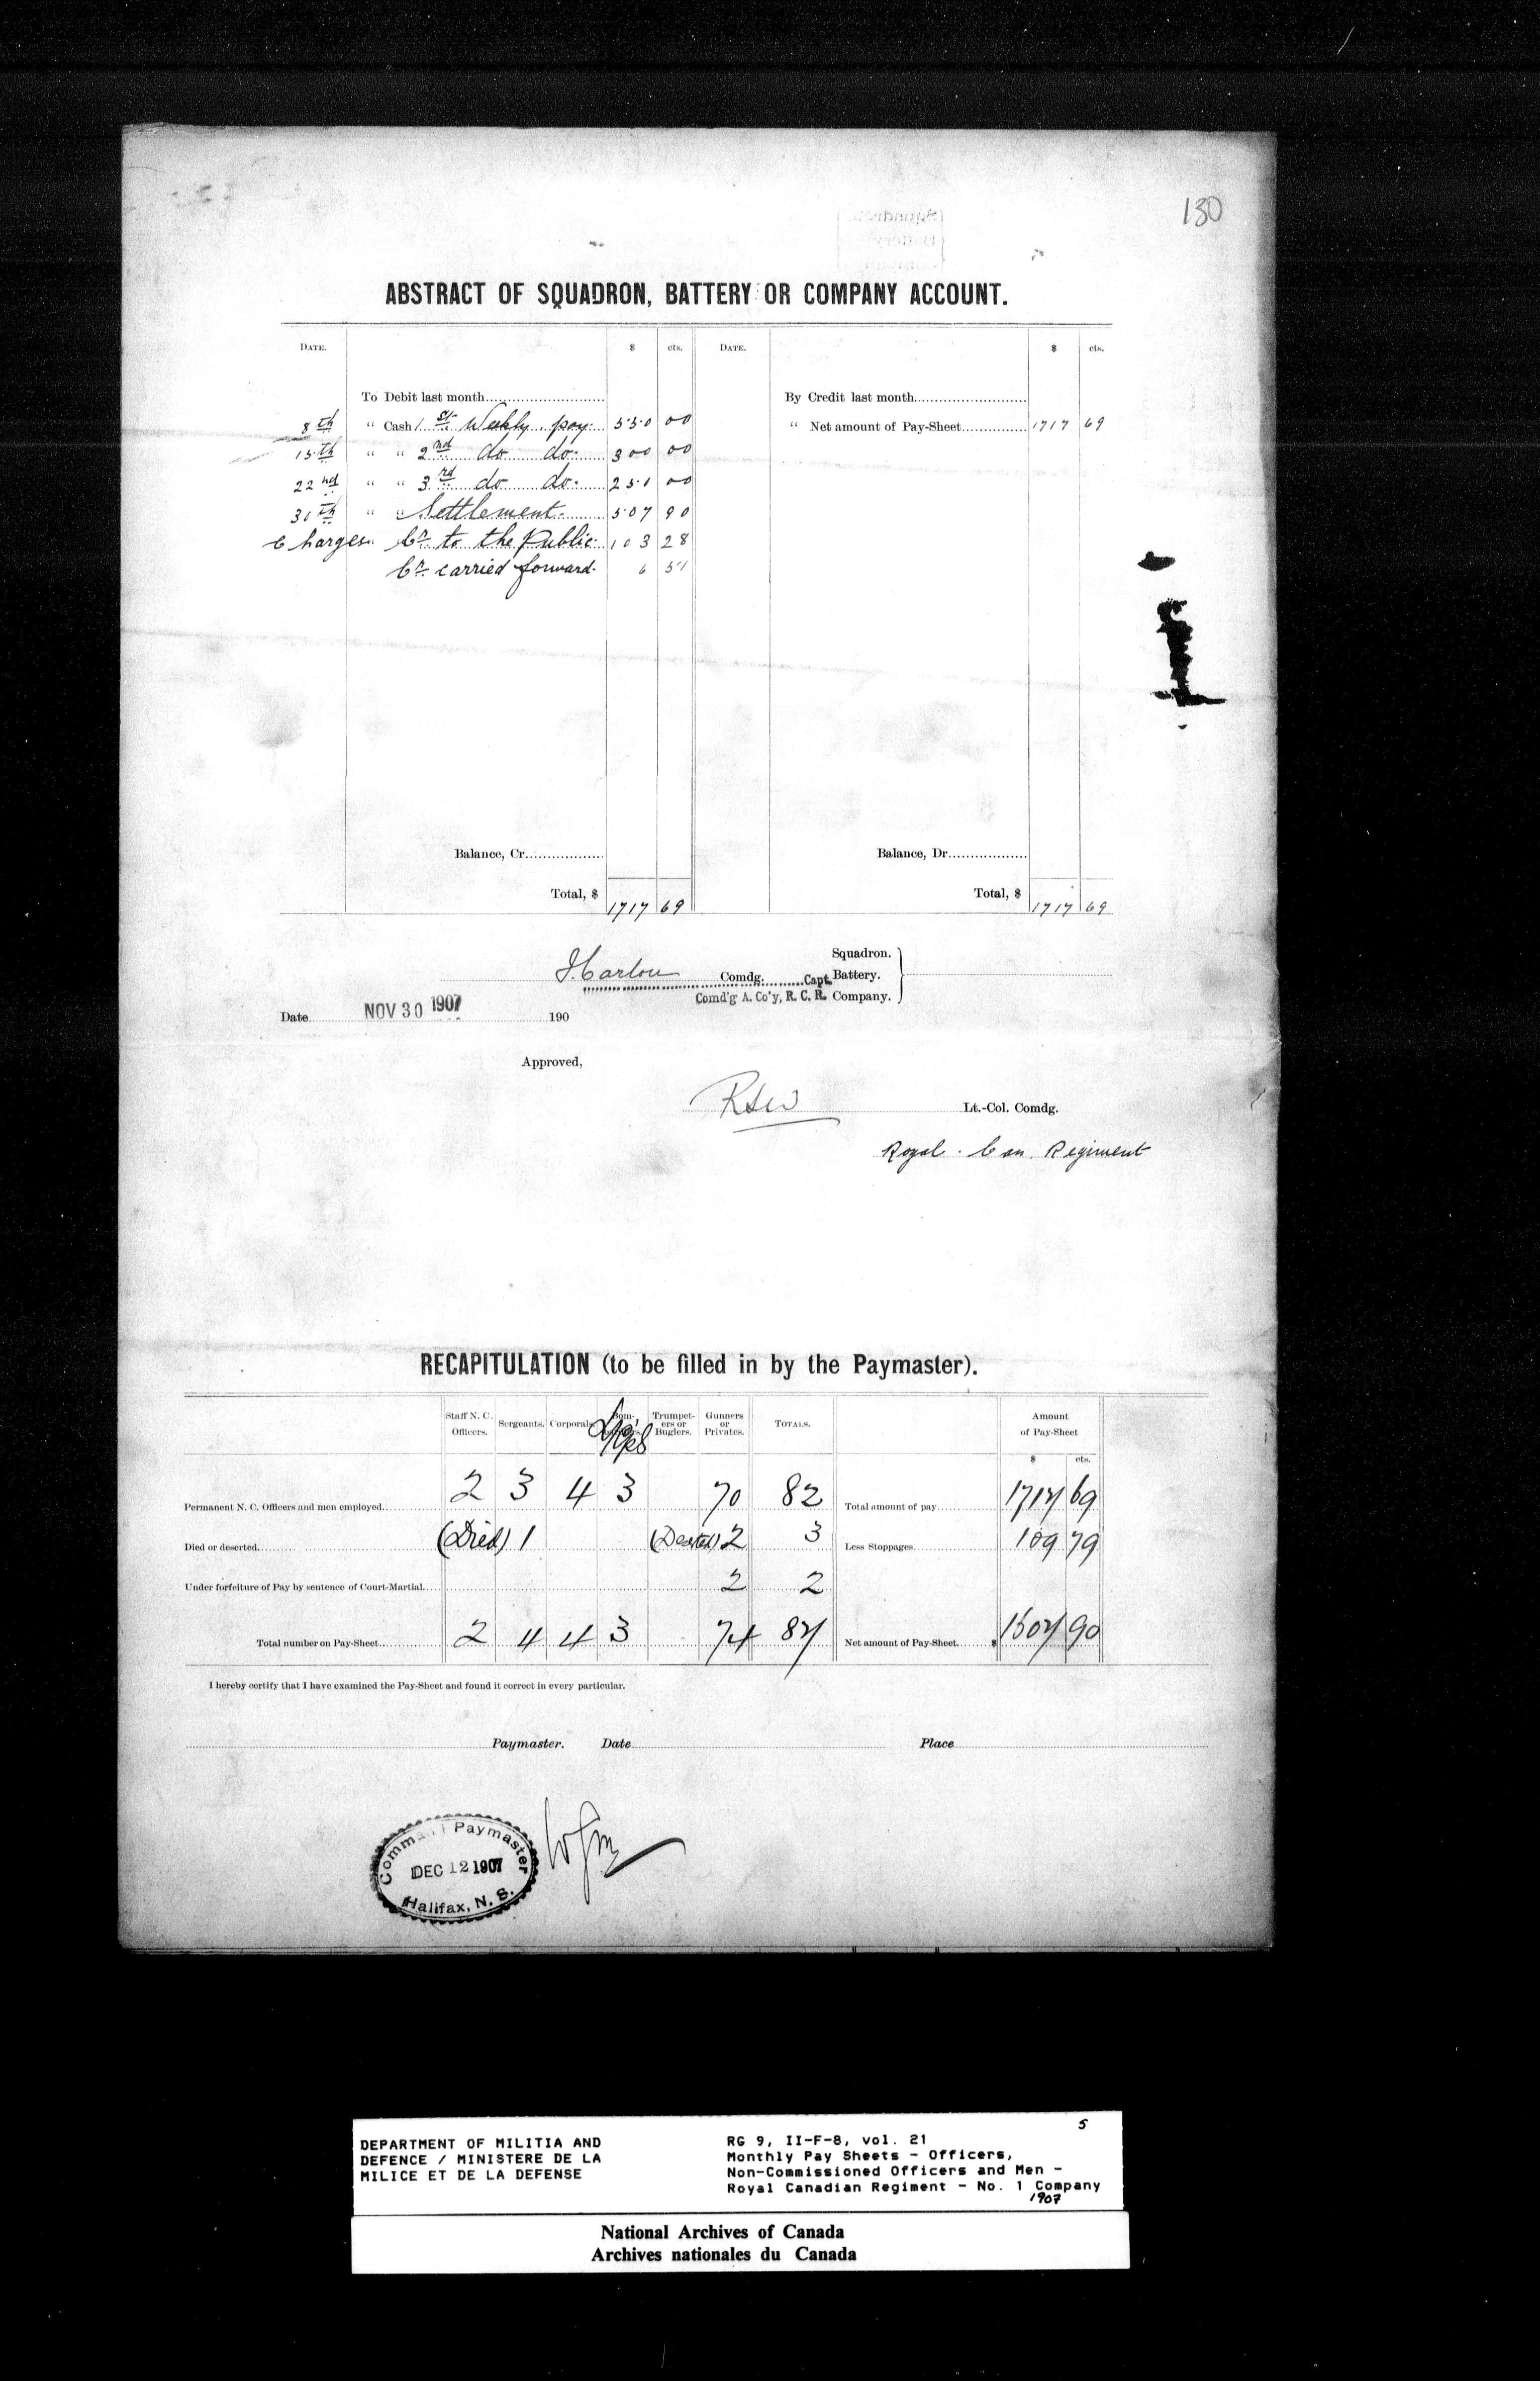 130
ABSTRACT OF SQUADRON, BATTERY OR COMPANY ACCOUNT.
DATE. $ cts. DATE. $ cts.
To Debit last month By Credit last month
8th " Cash 1st Weekly pay. 550 00 " Net amount of Pay-Sheet 1717 69
15th " " 2nd do do. 300 00
22nd " " 3rd do do. 250 00
30th " " Settlement. 507 90
Charges. Cr. to the Public. 103 28
Cr. carried forward. 6 51
Balance, Cr. Balance, Dr.
Total, $ 1717 69 Total, $ 1717 69
Squadron.
Comdg. Capt. Battery.
Comd'g A. Co'y, R. C. R. Company.
Date NOV 30 1907 190
Approved,
Lt.-Col. Comdg.
Royal. Can. Regiment
RECAPITULATION (to be filled in by the Paymaster).
Staff N. C. Officers. Sergeants. Corporals. Trumpeters or Buglers. Gunners or Privates. TOTALS. Amount of Pay-Sheet
$ cts.
Permanent N. C. Officers and men employed 2 3 4 3 70 82 Total amount of pay 1717 69
Died or deserted (Died) 1 2 3 Less Stoppages 109 79
Under forfeiture of Pay by sentence of Court-Martial 2 2
Total number on Pay-Sheet 2 4 4 3 74 87 Net amount of Pay-Sheet $ 1607 90
I hereby certify that I have examined the Pay-Sheet and found it correct in every particular.
Paymaster. Date Place
Command Paymaster
DEC 12 1907
Halifax, N. S.
5
DEPARTMENT OF MILITIA AND
DEFENCE / MINISTERE DE LA
MILICE ET DE LA DEFENSE
RG 9, II-F-8, vol. 21
Monthly Pay Sheets - Officers,
Non-Commissioned Officers and Men -
Royal Canadian Regiment - No. 1 Company
1907
National Archives of Canada
Archives nationales du Canada